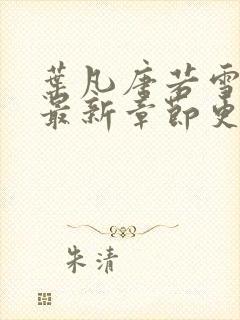 葉凡唐若雪
最新章節更
朱清